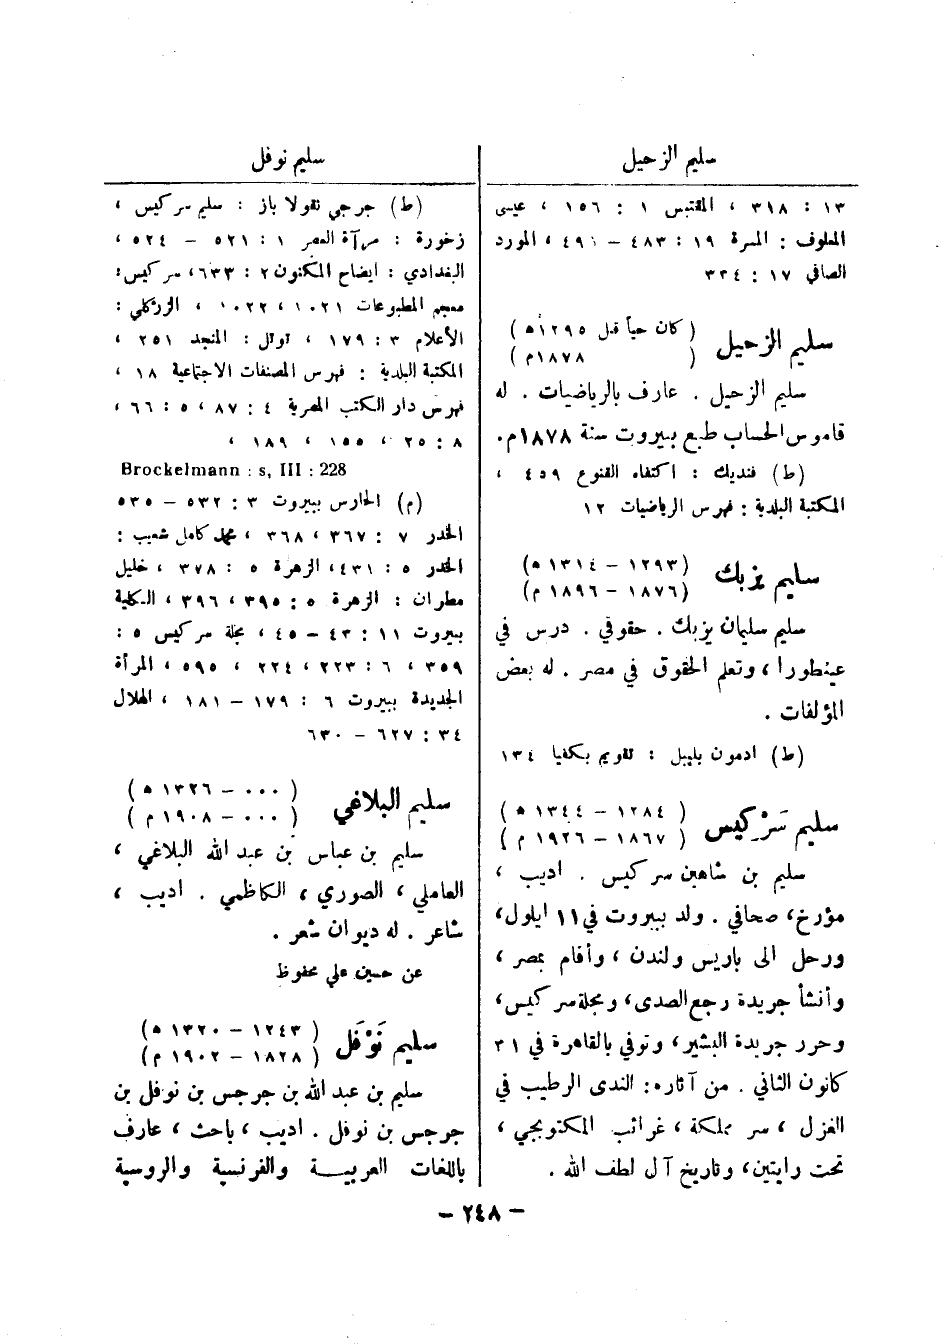 سليم الزحيل
١٣ : ٣١٨ ، المقتبس ١ : ١٥٦ ، عيسى
المعلوف : المسرة ١٩ : ٤٨٣ – ٤٩١ ، المورد
الصافي ١٧ : ٣٣٤
سليم الزحيل ( كان حياً قبل ١٢٩٥ ه )
( ١٨٧٨ م )
سليم الزحيل . عارف بالرياضيات . له
قاموس الحساب طبع ببيروت سنة ١٨٧٨ م .
(ط) فنديك : اكتفاء القنوع ٤٥٩ ،
المكتبة البلدية : فهرس الرياضيات ١٢
سليم يزبك (١٢٩٣ – ١٣١٤ ه )
(١٨٧٦ – ١٨٩٦ م )
سليم سليمان يزبك . حقوقي . درس في
عينطورا ، وتعلم الحقوق في مصر . له بعض
المؤلفات .
(ط) ادمون بليبل : تقويم بكفيا ١٣٤
سليم سَرْكيس ( ١٢٨٤ – ١٣٤٤ ه )
( ١٨٦٧ – ١٩٢٦ م )
سليم بن شاهين سركيس . اديب ،
مؤرخ ، صحافي . ولد ببيروت في ١١ ايلول ،
ورحل الى باريس ولندن ، وأقام بمصر ،
وأنشأ جريدة رجع الصدى ، ومجلة سركيس ،
وحرر جريدة البشير ، وتوفي بالقاهرة في ٣١
كانون الثاني . من آثاره : الندى الرطيب في
الغزل ، سر مملكة ، غرائب المكتوبجي ،
تحت رايتين ، وتاريخ آل لطف الله .
سليم نوفل
(ط) جرجي نقولا باز : سليم سركيس ،
زخورة : مرآة العصر ١ : ٥٢١ – ٥٢٤ ،
البغدادي : ايضاح المكنون ٢ : ٦٣٣ ، سركيس :
معجم المطبوعات ١٠٢١ ، ١٠٢٢ ، الزركلي :
الأعلام ٣ : ١٧٩ ، توتل : المنجد ٢٥١ ،
المكتبة البلدية : فهرس المصنفات الاجتماعية ١٨ ،
فهرس دار الكتب المصرية ٤ : ٨٧ ، ٥ : ٦٦ ،
٨ : ٢٥ ، ١٥٥ ، ١٨٩ ،
Brockelmann : s, III : 228
(م) الحارس ببيروت ٣ : ٥٣٢ – ٥٣٥
الخدر ٧ : ٣٦٧ ، ٣٦٨ ، محمد كامل شعيب :
الخدر ٥ : ٤٣١ ، الزهرة ٥ : ٣٧٨ ، خليل
مطران : الزهرة ٥ : ٣٩٥ ، ٣٩٦ ، الكلية
ببيروت ١١ : ٤٣ – ٤٥ ، مجلة سركيس ٥ :
٣٥٩ ، ٦ : ٢٢٣ ، ٢٢٤ ، ٥٩٥ ، المرأة
الجديدة ببيروت ٦ : ١٧٩ – ١٨١ ، الهلال
٣٤ : ٦٢٧ – ٦٣٠
سليم البلاغي ( ٠٠٠ – ١٣٢٦ ه )
( ٠٠٠ – ١٩٠٨ م )
سليم بن عباس بن عبد الله البلاغي ،
العاملي ، الصوري ، الكاظمي . اديب ،
شاعر . له ديوان شعر .
عن حسين علي محفوظ
سليم نَوْفَل ( ١٢٤٣ – ١٣٢٠ ه )
( ١٨٢٨ – ١٩٠٢ م )
سليم بن عبد الله بن جرجس بن نوفل بن
جرجس بن نوفل . اديب ، باحث ، عارف
باللغات العربيــة والفرنسية والروسية
– ٢٤٨ –